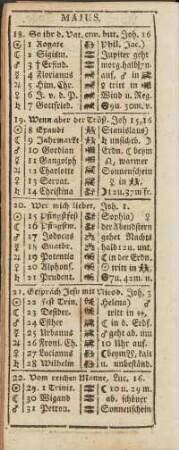 MAJUS.
18. So ihr d. Vat. etw. bitt. Joh. 16
☉ 1 Rogate Phil. Jac.)
☾ 2 Sigism. Jupiter geht
♂ 3 † Erfind. morg. halb
☿ 4 Florianus auf, ♂ in
♃ 5 Him. Chr. ☿ tritt in
♀ 6 J. v. d. P. Wind u. Reg.
♄ 7 Gottfried. 9u. 30m. v.
19. Wenn aber der Tröst. Joh 15,16
☉ 8 Exaudi Stanislaus)
☾ 9 Jahrmarkt ☾ in der Erdn.
♂ 10 Gordian ☾ beym
☿ 11 Gangolph ☊, warmer
♃ 12 Charlotte Sonnenschein
♀ 13 Servat. ☿ in
♄ 14 Christina 11u. 37m fr.
20. Wer mich lieber, Joh. 1.
☉ 15 Pfingstfest Sophia) ♀
☾ 16 Pfingstm. der Abendstern
♂ 17 Jodocus gehet Nachts
☿ 18 Quatbr. halb 12 u. unt.
♃ 19 Potentia ☾ in der Erdn.
♀ 20 Alphons. ☉ tritt in
♄ 21 Prudent. 7u. 43m n.
21. Gespräch Jesu mit Nicod. Joh. 3
☉ 22 Fest Trin. Helena) ♂
☾ 23 Desider. tritt in
♂ 24 Esther ☾ in d. Erdf.
☿ 25 Urbanus geht ab nach
♃ 26 Fronl. Ch. 10 Uhr auf.
♀ 27 Lucianus ☾ beym ☋, kalt
♄ 28 Wilhelm u. unbeständ.
22. Vom reichen Manne, Luc. 16.
☉ 29. 1 Trinit. ☾ 10 u. 29 m.
☾ 30 Wigand ab. schöner
♂ 31 Petron. Sonnenschein